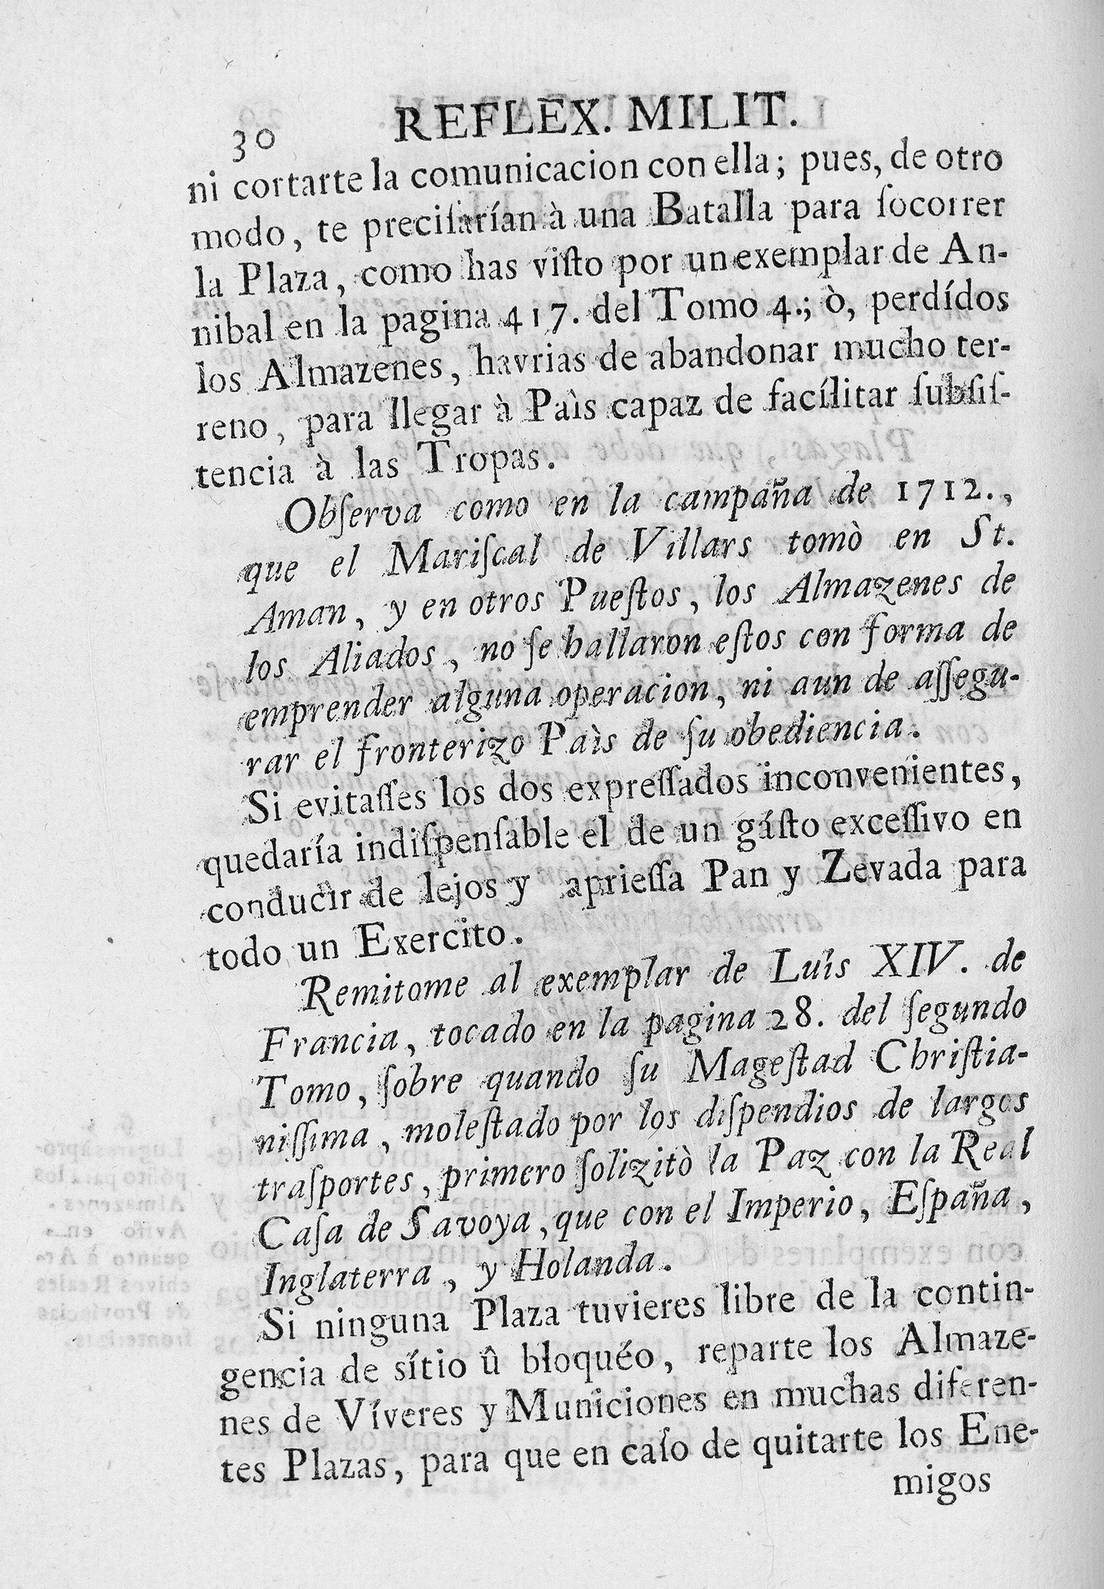 30 REFLEX. MILIT.
ni cortarte la comunicacion con ella; pues, de otro
modo, te preciſarían à una Batalla para ſocorrer
la Plaza, como has viſto por un exemplar de An-
nibal en la pagina 417. del Tomo 4.; ò, perdídos
los Almazenes, havrias de abandonar mucho ter-
reno, para llegar à Paìs capaz de facílitar ſubſiſ-
tencia à las Tropas.
Obſerva como en la campaña de 1712.,
que el Mariſcal de Villars tomò en St.
Aman, y en otros Pueſtos, los Almazenes de
los Aliados, no ſe hallaron eſtos con forma de
emprender alguna operacion, ni aun de aſſegu-
rar el fronterizo Paìs de ſu obediencia.
Si evitaſſes los dos expreſſados inconvenientes,
quedaría indiſpenſable el de un gáſto exceſſivo en
conducìr de lejos y aprieſſa Pan y Zevada para
todo un Exercito.
Remitome al exemplar de Luis XIV. de
Francia, tocado en la pagina 28. del ſegundo
Tomo, ſobre quando ſu Mageſtad Chriſtia-
niſſima, moleſtado por los diſpendios de largos
traſportes, primero ſolizitò la Paz con la Real
Caſa de Savoya, que con el Imperio, Eſpaña,
Inglaterra, y Holanda.
Si ninguna Plaza tuvieres libre de la contin-
gencia de sítio û bloquéo, reparte los Almaze-
nes de Víveres y Municiones en muchas diferen-
tes Plazas, para que en caſo de quitarte los Ene-
migos